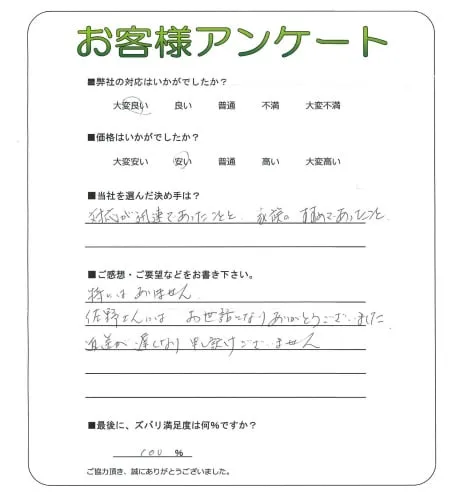 お客様アンケート
■弊社の対応はいかがでしたか？
大変良い 良い 普通 不満 大変不満
■価格はいかがでしたか？
大変安い 安い 普通 高い 大変高い
■当社を選んだ決め手は？
対応が迅速であったことと、家族の すすめであったこと
■ご感想・ご要望などをお書き下さい。
特にはありません
佐野さんには お世話になりありがとうございました
返送が遅くなり申し訳けございません
■最後に、ズバリ満足度は何%ですか？
100 %
ご協力頂き、誠にありがとうございました。